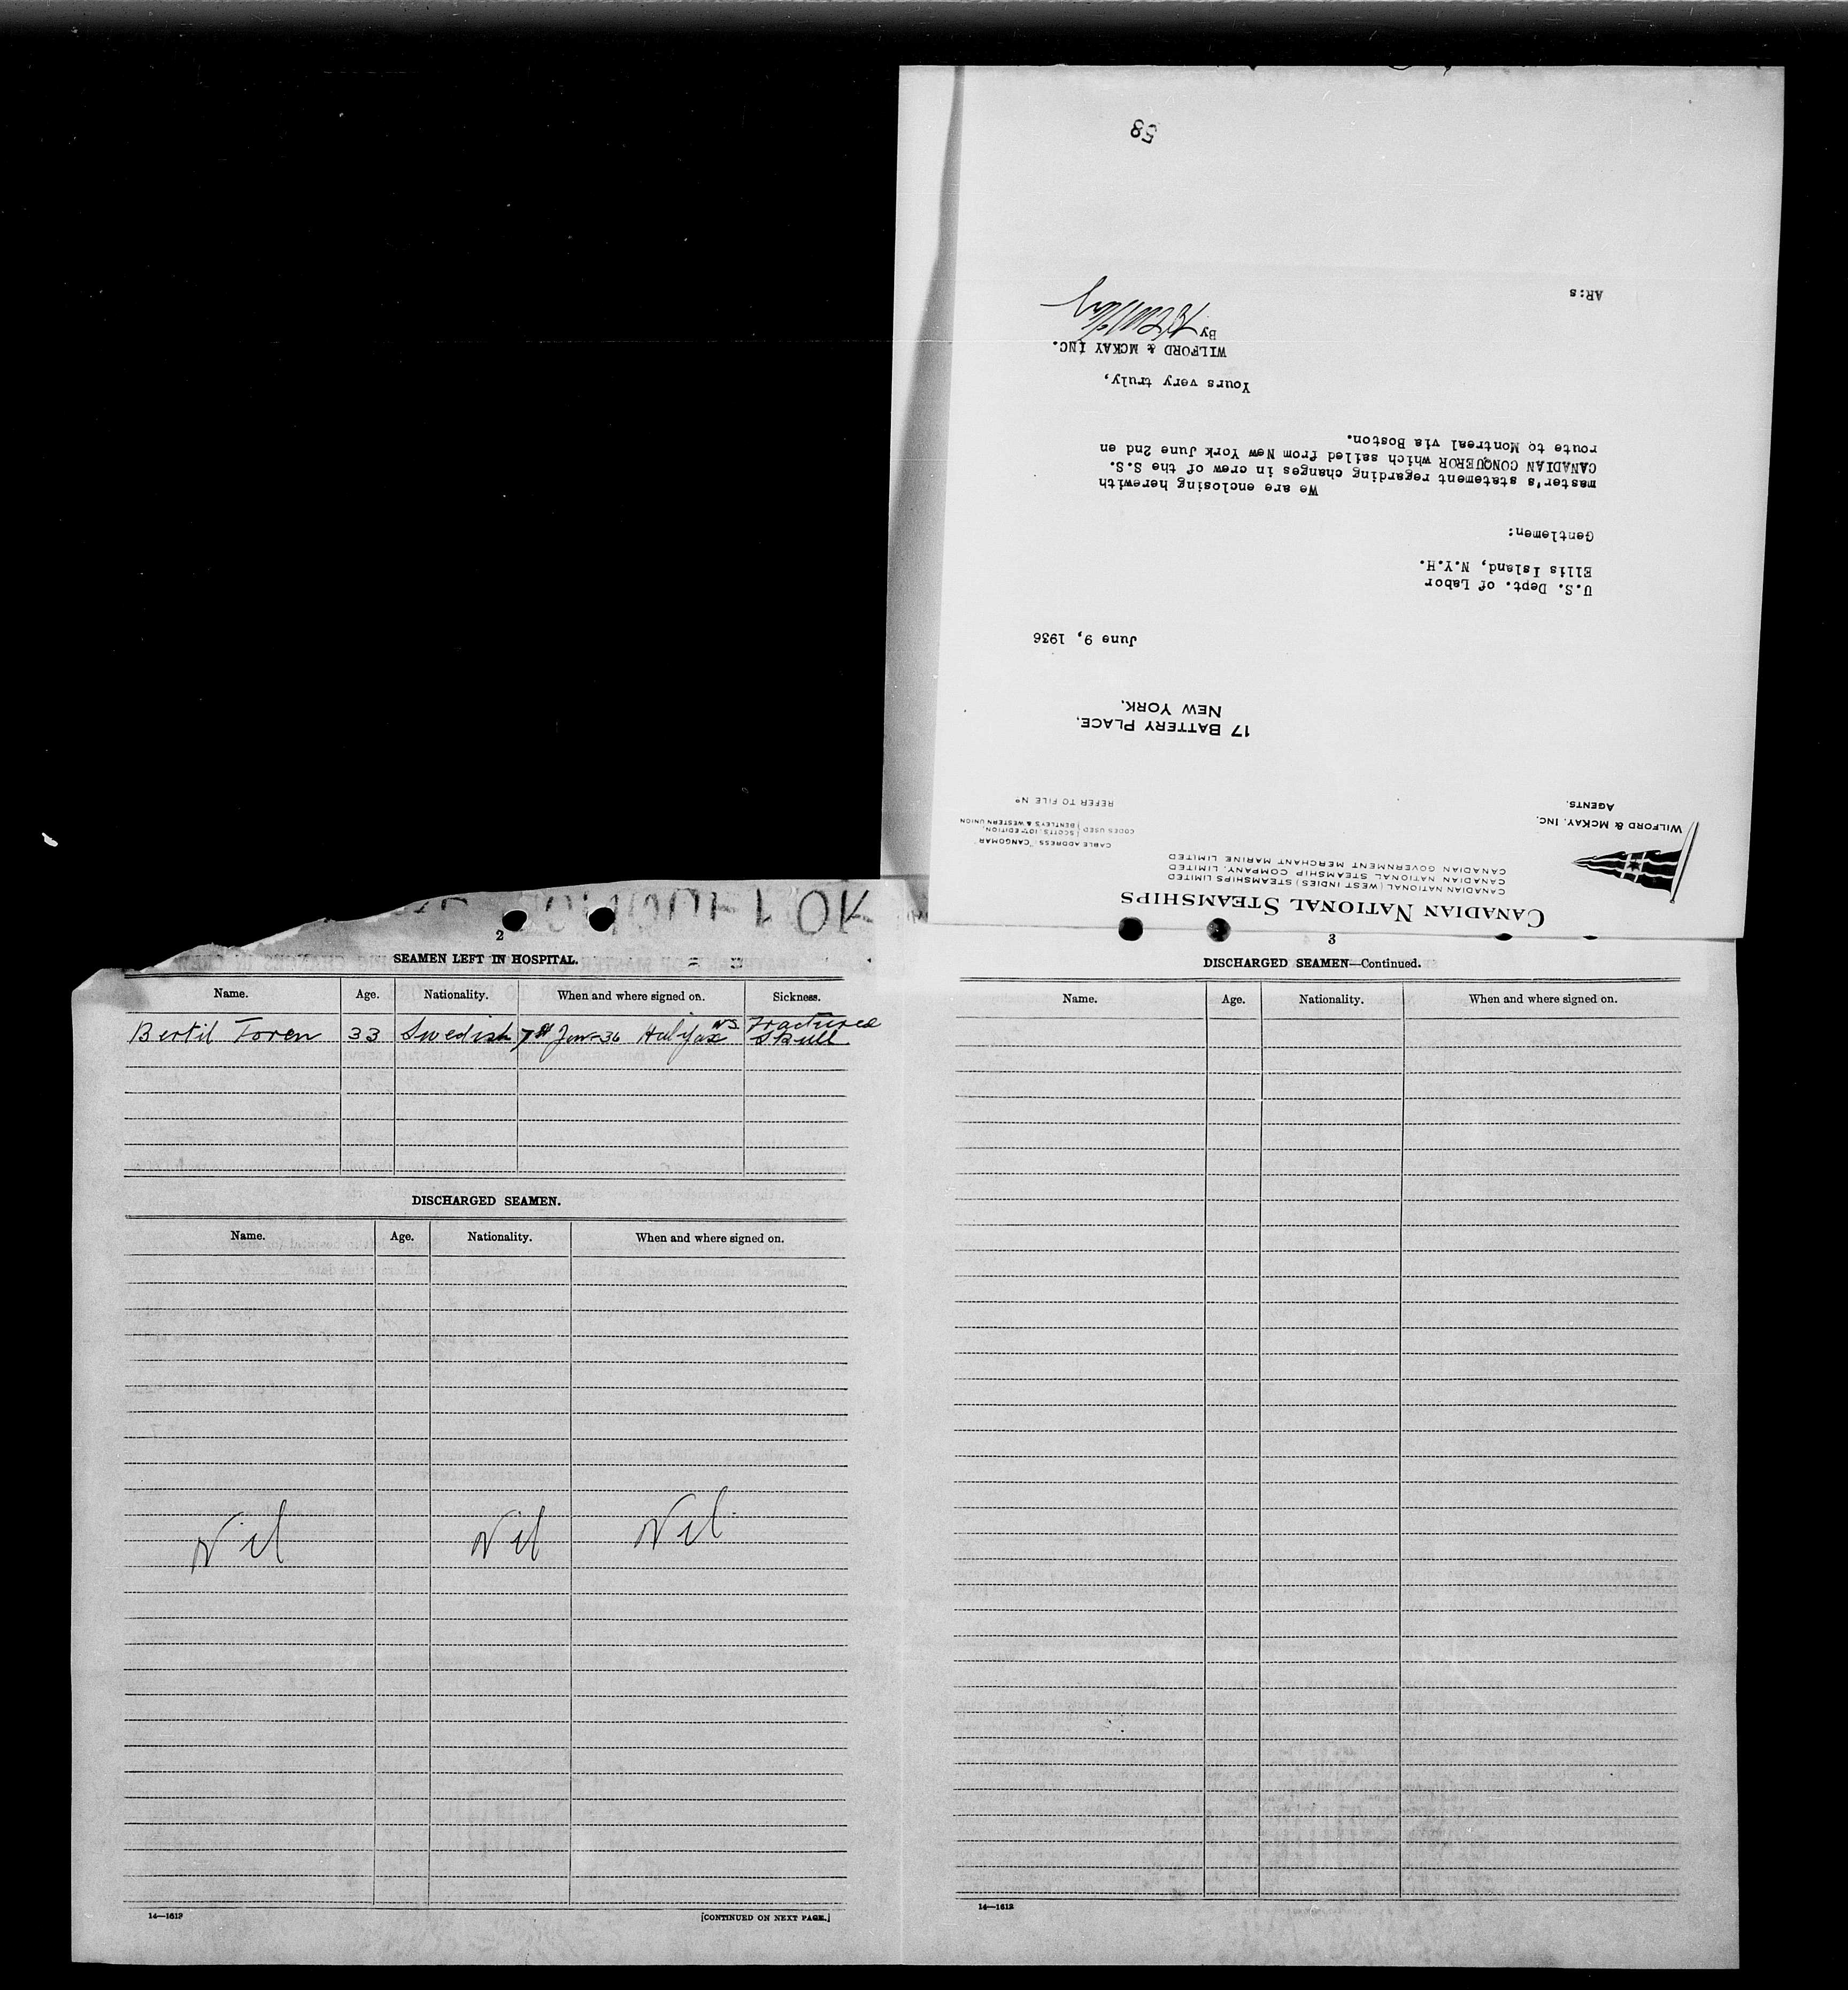 CANADIAN NATIONAL STEAMSHIPS
CANADIAN NATIONAL (WEST INDIES) STEAMSHIPS LIMITED
CANADIAN NATIONAL STEAMSHIP COMPANY, LIMITED
CANADIAN GOVERNMENT MERCHANT MARINE LIMITED
WILFORD & MCKAY, INC.
AGENTS.
CABLE ADDRESS "CANGOMAR"
CODES USED SCOTTS, 10TH EDITION,
BENTLEY'S & WESTERN UNION
REFER TO FILE No
17 BATTERY PLACE,
NEW YORK.
June 9, 1936
U.S. Dept. of Labor
Ellis Island, N.Y.H.
Gentlemen:
We are enclosing herewith
master's statement regarding changes in crew of the S.S.
CANADIAN CONQUEROR which sailed from New York June 2nd en
route to Montreal via Boston.
Yours very truly,
WILFORD & MCKAY INC.
By
AR:s
58
2
SEAMEN LEFT IN HOSPITAL.
Name. Age. Nationality. When and where signed on. Sickness.
Bertil Toren 33 Swedish 7th Jan-36 Halifax N.S. Fractured
Skull
DISCHARGED SEAMEN.
Name. Age. Nationality. When and where signed on.
Nil Nil Nil
14—1612
[CONTINUED ON NEXT PAGE.]
3
DISCHARGED SEAMEN—Continued.
Name. Age. Nationality. When and where signed on.
14—1612